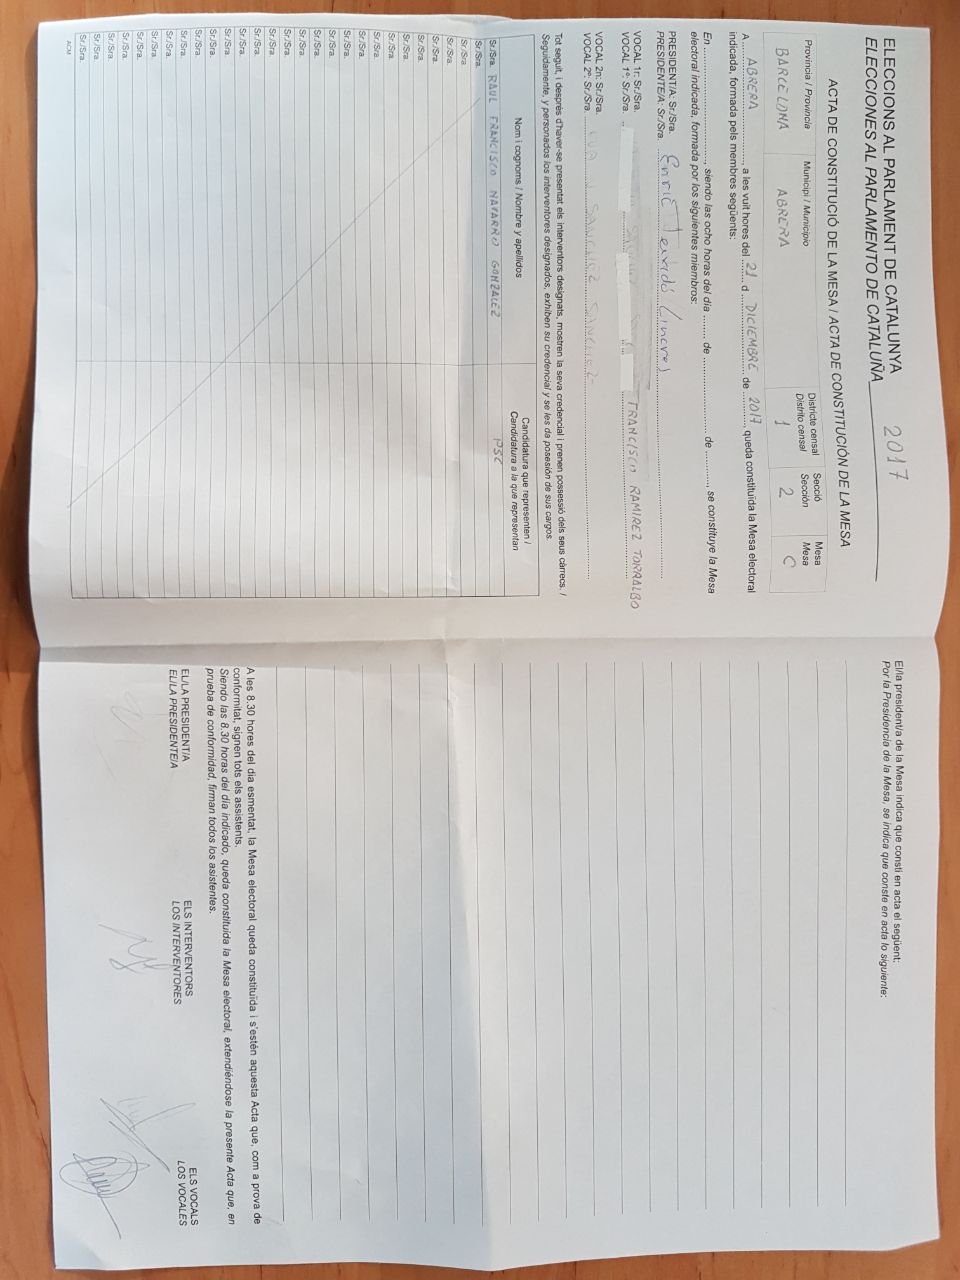 ELECCIONS AL PARLAMENT DE CATALUNYA
ELECCIONES AL PARLAMENTO DE CATALUÑA 2017
ACTA DE CONSTITUCIÓ DE LA MESA / ACTA DE CONSTITUCIÓN DE LA MESA
Província / Provincia Municipi / Municipio Districte censal Secció Mesa
Distrito censal Sección Mesa
BARCELONA ABRERA 1 2 C
A ABRERA, a les vuit hores del 21 d DICIEMBRE de 2017 queda constituïda la Mesa electoral
indicada, formada pels membres següents:
En ........, siendo las ocho horas del día ........ de ........ de ........, se constituye la Mesa
electoral indicada, formada por los siguientes miembros:
PRESIDENT/A: Sr./Sra.
PRESIDENTE/A: Sr./Sra. Enric
VOCAL 1r: Sr./Sra.
VOCAL 1º: Sr./Sra. FRANCISCO RAMIREZ TORRALBO
VOCAL 2n: Sr./Sra.
VOCAL 2º: Sr./Sra. SANCHEZ SANCHEZ
Tot seguit, i després d'haver-se presentat els interventors designats, mostren la seva credencial i prenen possessió dels seus càrrecs. /
Seguidamente, y personados los interventores designados, exhiben su credencial y se les da posesión de sus cargos.
Nom i cognoms / Nombre y apellidos Candidatura que representen /
Candidatura a la que representan
Sr./Sra. RAUL FRANCISCO NAVARRO GONZALEZ PSC
Sr./Sra.
Sr./Sra.
Sr./Sra.
Sr./Sra.
Sr./Sra.
Sr./Sra.
Sr./Sra.
Sr./Sra.
Sr./Sra.
Sr./Sra.
Sr./Sra.
Sr./Sra.
Sr./Sra.
Sr./Sra.
Sr./Sra.
Sr./Sra.
Sr./Sra.
Sr./Sra.
Sr./Sra.
Sr./Sra.
Sr./Sra.
Sr./Sra.
Sr./Sra.
Sr./Sra.
Sr./Sra.
Sr./Sra.
Sr./Sra.
Sr./Sra.
ACM
El/la president/a de la Mesa indica que consti en acta el següent:
Por la Presidencia de la Mesa, se indica que conste en acta lo siguiente:
A les 8.30 hores del dia esmentat, la Mesa electoral queda constituïda i s'estén aquesta Acta que, com a prova de
conformitat, signen tots els assistents.
Siendo las 8.30 horas del día indicado, queda constituida la Mesa electoral, extendiéndose la presente Acta que, en
prueba de conformidad, firman todos los asistentes.
EL/LA PRESIDENT/A ELS INTERVENTORS ELS VOCALS
EL/LA PRESIDENTE/A LOS INTERVENTORES LOS VOCALES